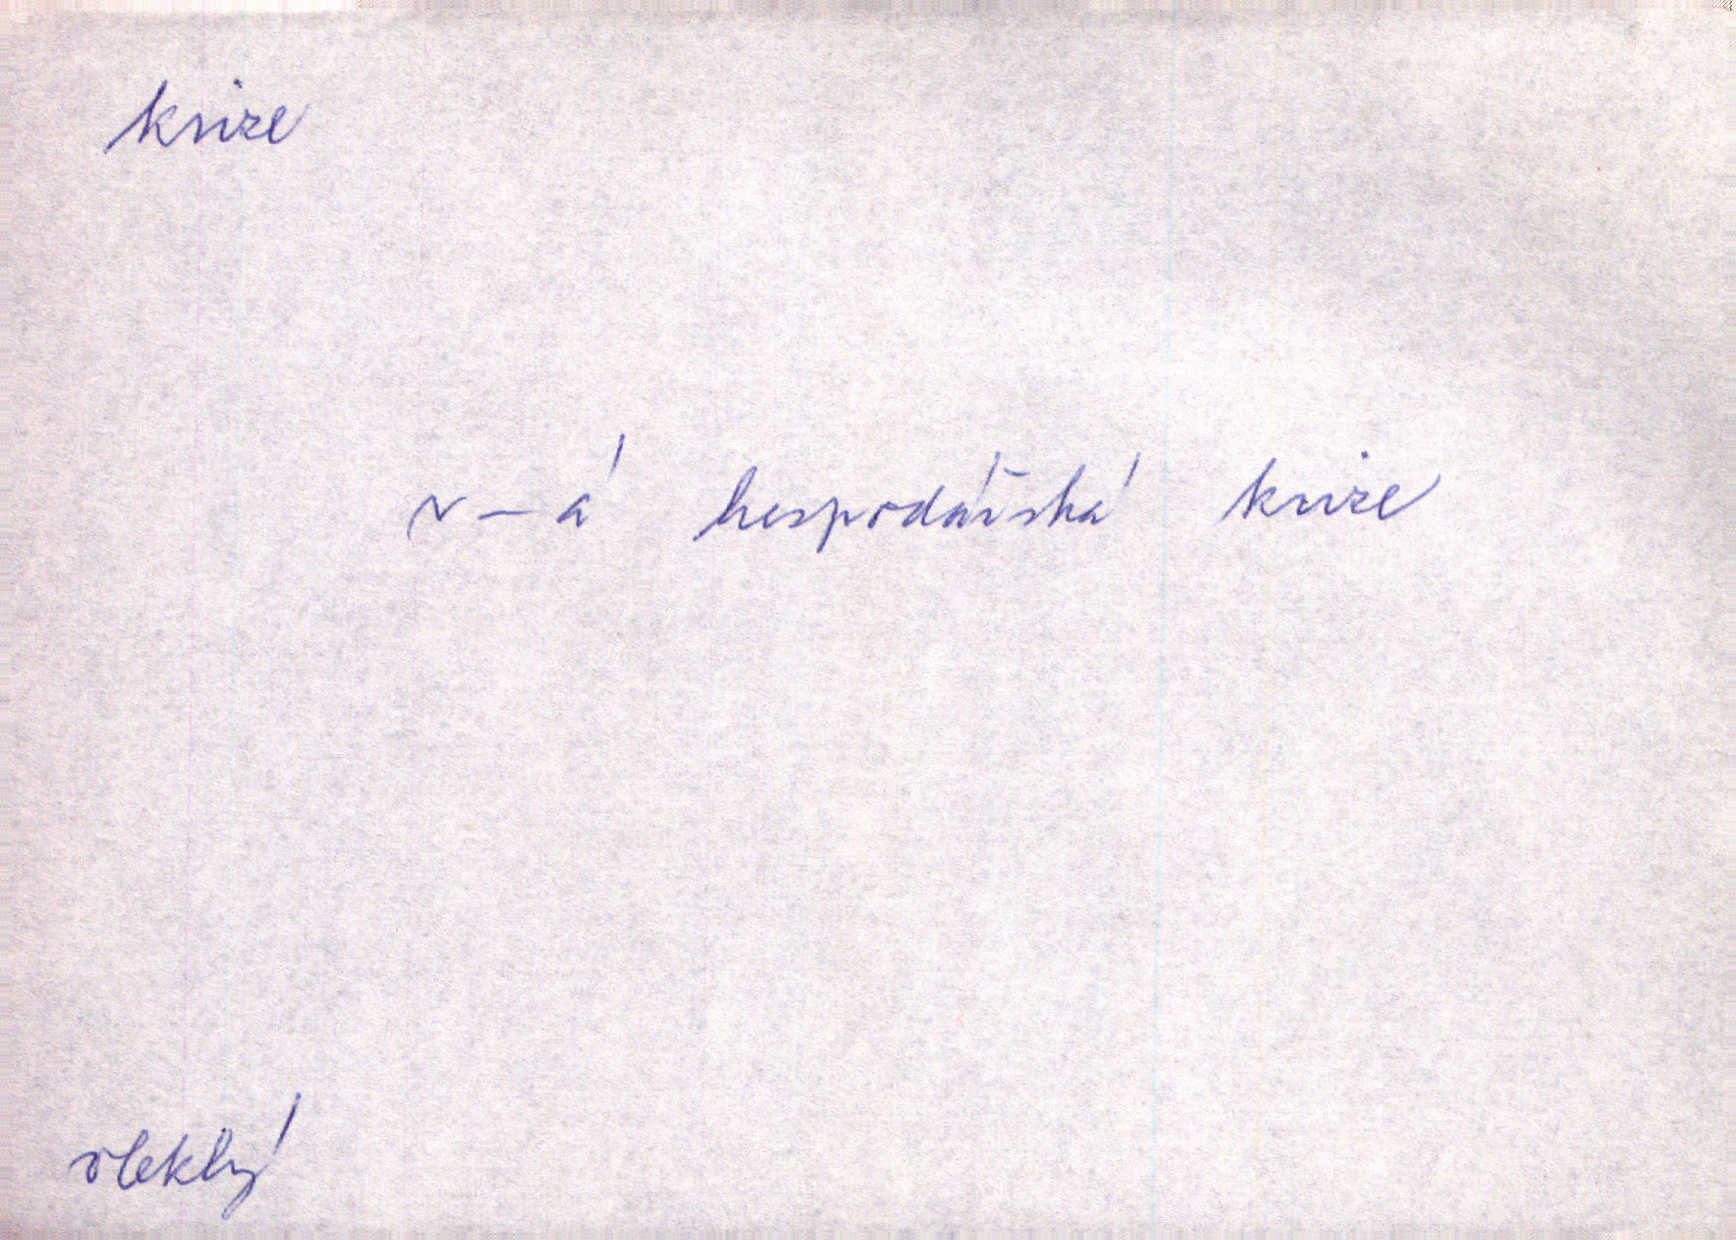 krize
v-á hospodářská krize
vleklý